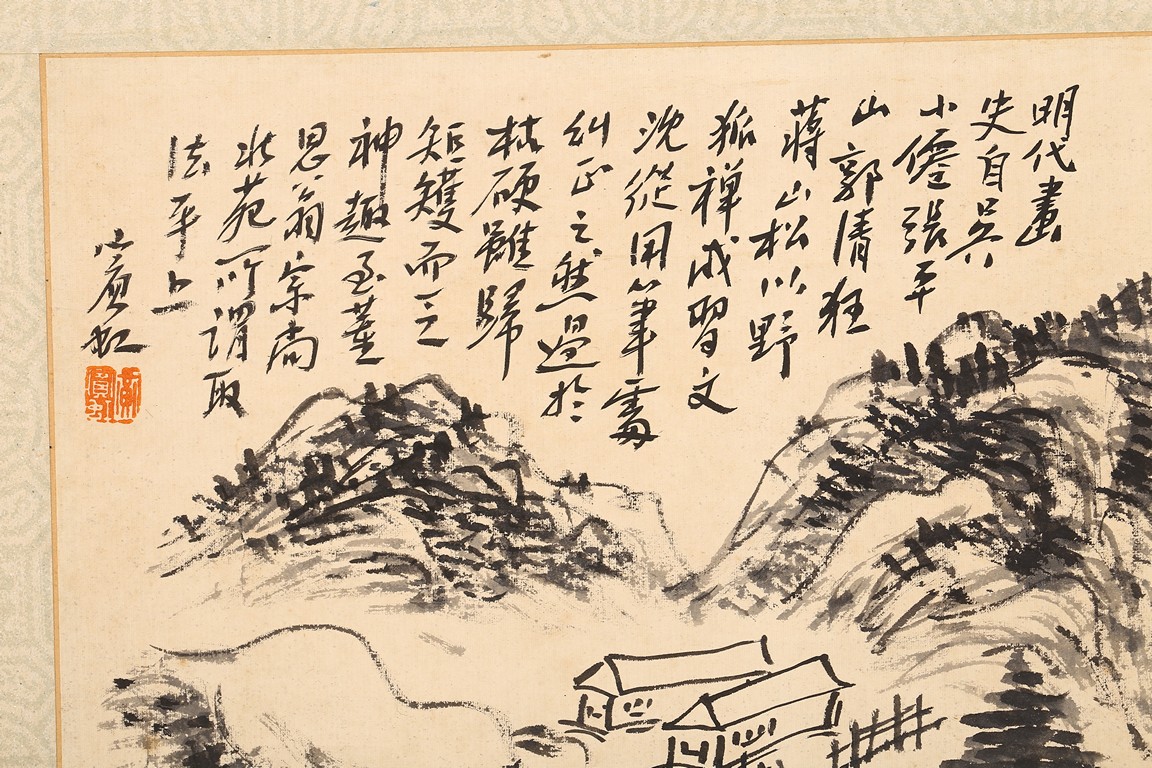 明代畫
史自吳
小僊張平
山郭清狂
蔣山松以野
狐禅成習文
沈從用筆
糾正之然過於
枯硬雖歸
矩矱而乏
神趣至董
思翁宗尚
北苑所謂取
法乎上
賓虹